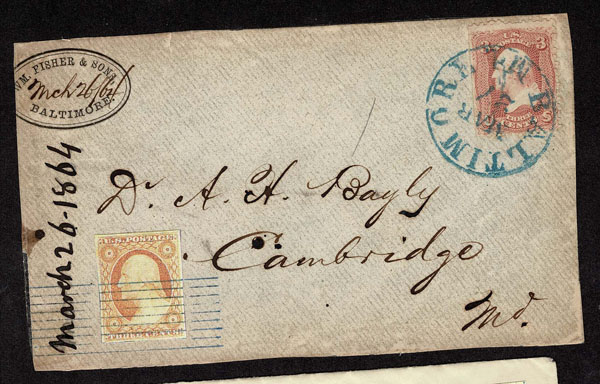 WM. FISHER & SONS
Mch 26/64
BALTIMORE.
U.S. POSTAGE
3 3
THREE
CENTS
U S
BALTIMORE
MAR
March 26-1864
Dr. A. H. Bayly
Cambridge
Md.
U.S. POSTAGE
THREE CENTS